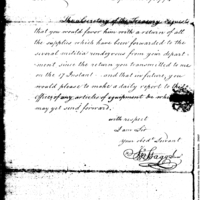 The Secretary of the Treasury requests
that you would favor him with a return of all
the supplies which have been forwarded to the
several military from your depart-
ment since the return you transmitted to me
on the 17 Instant and that in future, you
would please to make a daily report to this
Office of any articles of equipment he which
may get send forward.
with respect
I am Sir
your obd Servant